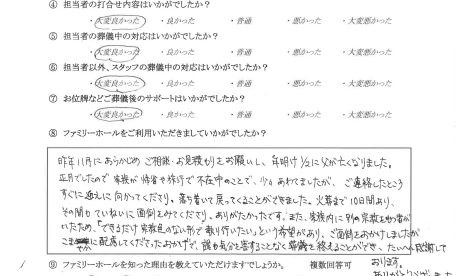 ④ 担当者の打合せ内容はいかがでしたか？
・大変良かった ・良かった ・普通 ・悪かった ・大変悪かった
⑤ 担当者の葬儀中の対応はいかがでしたか？
・大変良かった ・良かった ・普通 ・悪かった ・大変悪かった
⑥ 担当者以外、スタッフの葬儀中の対応はいかがでしたか？
・大変良かった ・良かった ・普通 ・悪かった ・大変悪かった
⑦ お位牌などご葬儀後のサポートはいかがでしたか？
・大変良かった ・良かった ・普通 ・悪かった ・大変悪かった
⑧ ファミリーホールをご利用いただきましていかがでしたか？
昨年11月にあらかじめご相談・お見積りをお願いし、年明け1/2に父が亡くなりました。
正月でしたので家族が帰省や旅行で不在中のことで、少々あわてましたが、ご連絡したところ
すぐに迎えに向かってくださり、落ち着いて戻ってくることができました。火葬まで10日間あり、
その間もていねいに面倒をみてくださり、ありがたかったです。また、家族内に別の宗教を
いたため、「できるだけ宗教色のない形で執り行いたい」という希望があり、ご面倒をおかけしましたが
に配慮してくださったおかげで、誰も気分を害することなく葬儀を終えることができ、たいへん感謝して
おります。
⑨ ファミリーホールを知った理由を教えていただけますでしょうか。 複数回答可
ありがとうございました